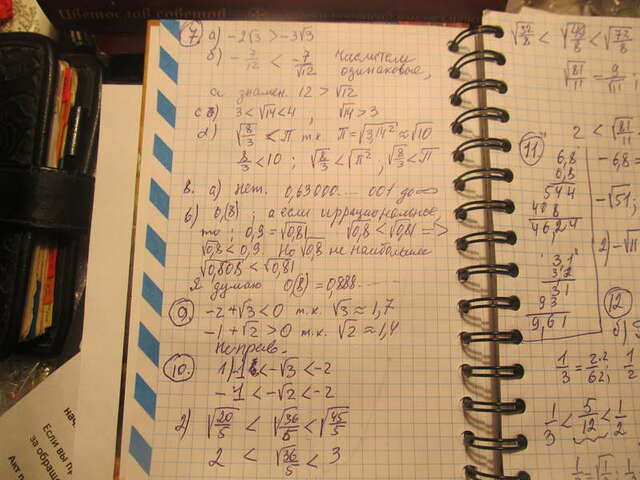 7. а) -2√3 > -3√3
б) -7/12 < -7/√12 числители
одинаковые,
а знамен. 12 > √12
с) 3 < √14 < 4, √14 > 3
d) √(8/3) < π т.к. π = √3,14² ≈ √10
8/3 < 10; √(8/3) < √π², √(8/3) < π
8. а) Нет. 0,63000.... 001 до ∞
б) 0,(8); а если иррациональное,
то: 0,9 = √0,81 √0,8 < √0,81 =>
√0,8 < 0,9. Но √0,8 не наибольшее
√0,808 < √0,81
Я думаю 0,(8) = 0,888......
9. -2+√3 < 0 т.к. √3 ≈ 1,7
-1+√2 > 0 т.к. √2 ≈ 1,4
Неправ.
10. 1) -1 < -√3 < -2
-1 < -√2 < -2
2) √(20/5) < √(36/5) < √(45/5)
2 < √(36/5) < 3
√(32/8) < √(48/8) < √(72/8)
√(81/11) = 9/√11
2 < √(81/11)
11
6,8
6,8
544
408
46,24
3,1
3,1
31
93
9,61
-6,8 =
-√51;
2) -√11
12
б)
1/3 = 2·2/62; 1/2
1/3 < 5/12 < 1/2